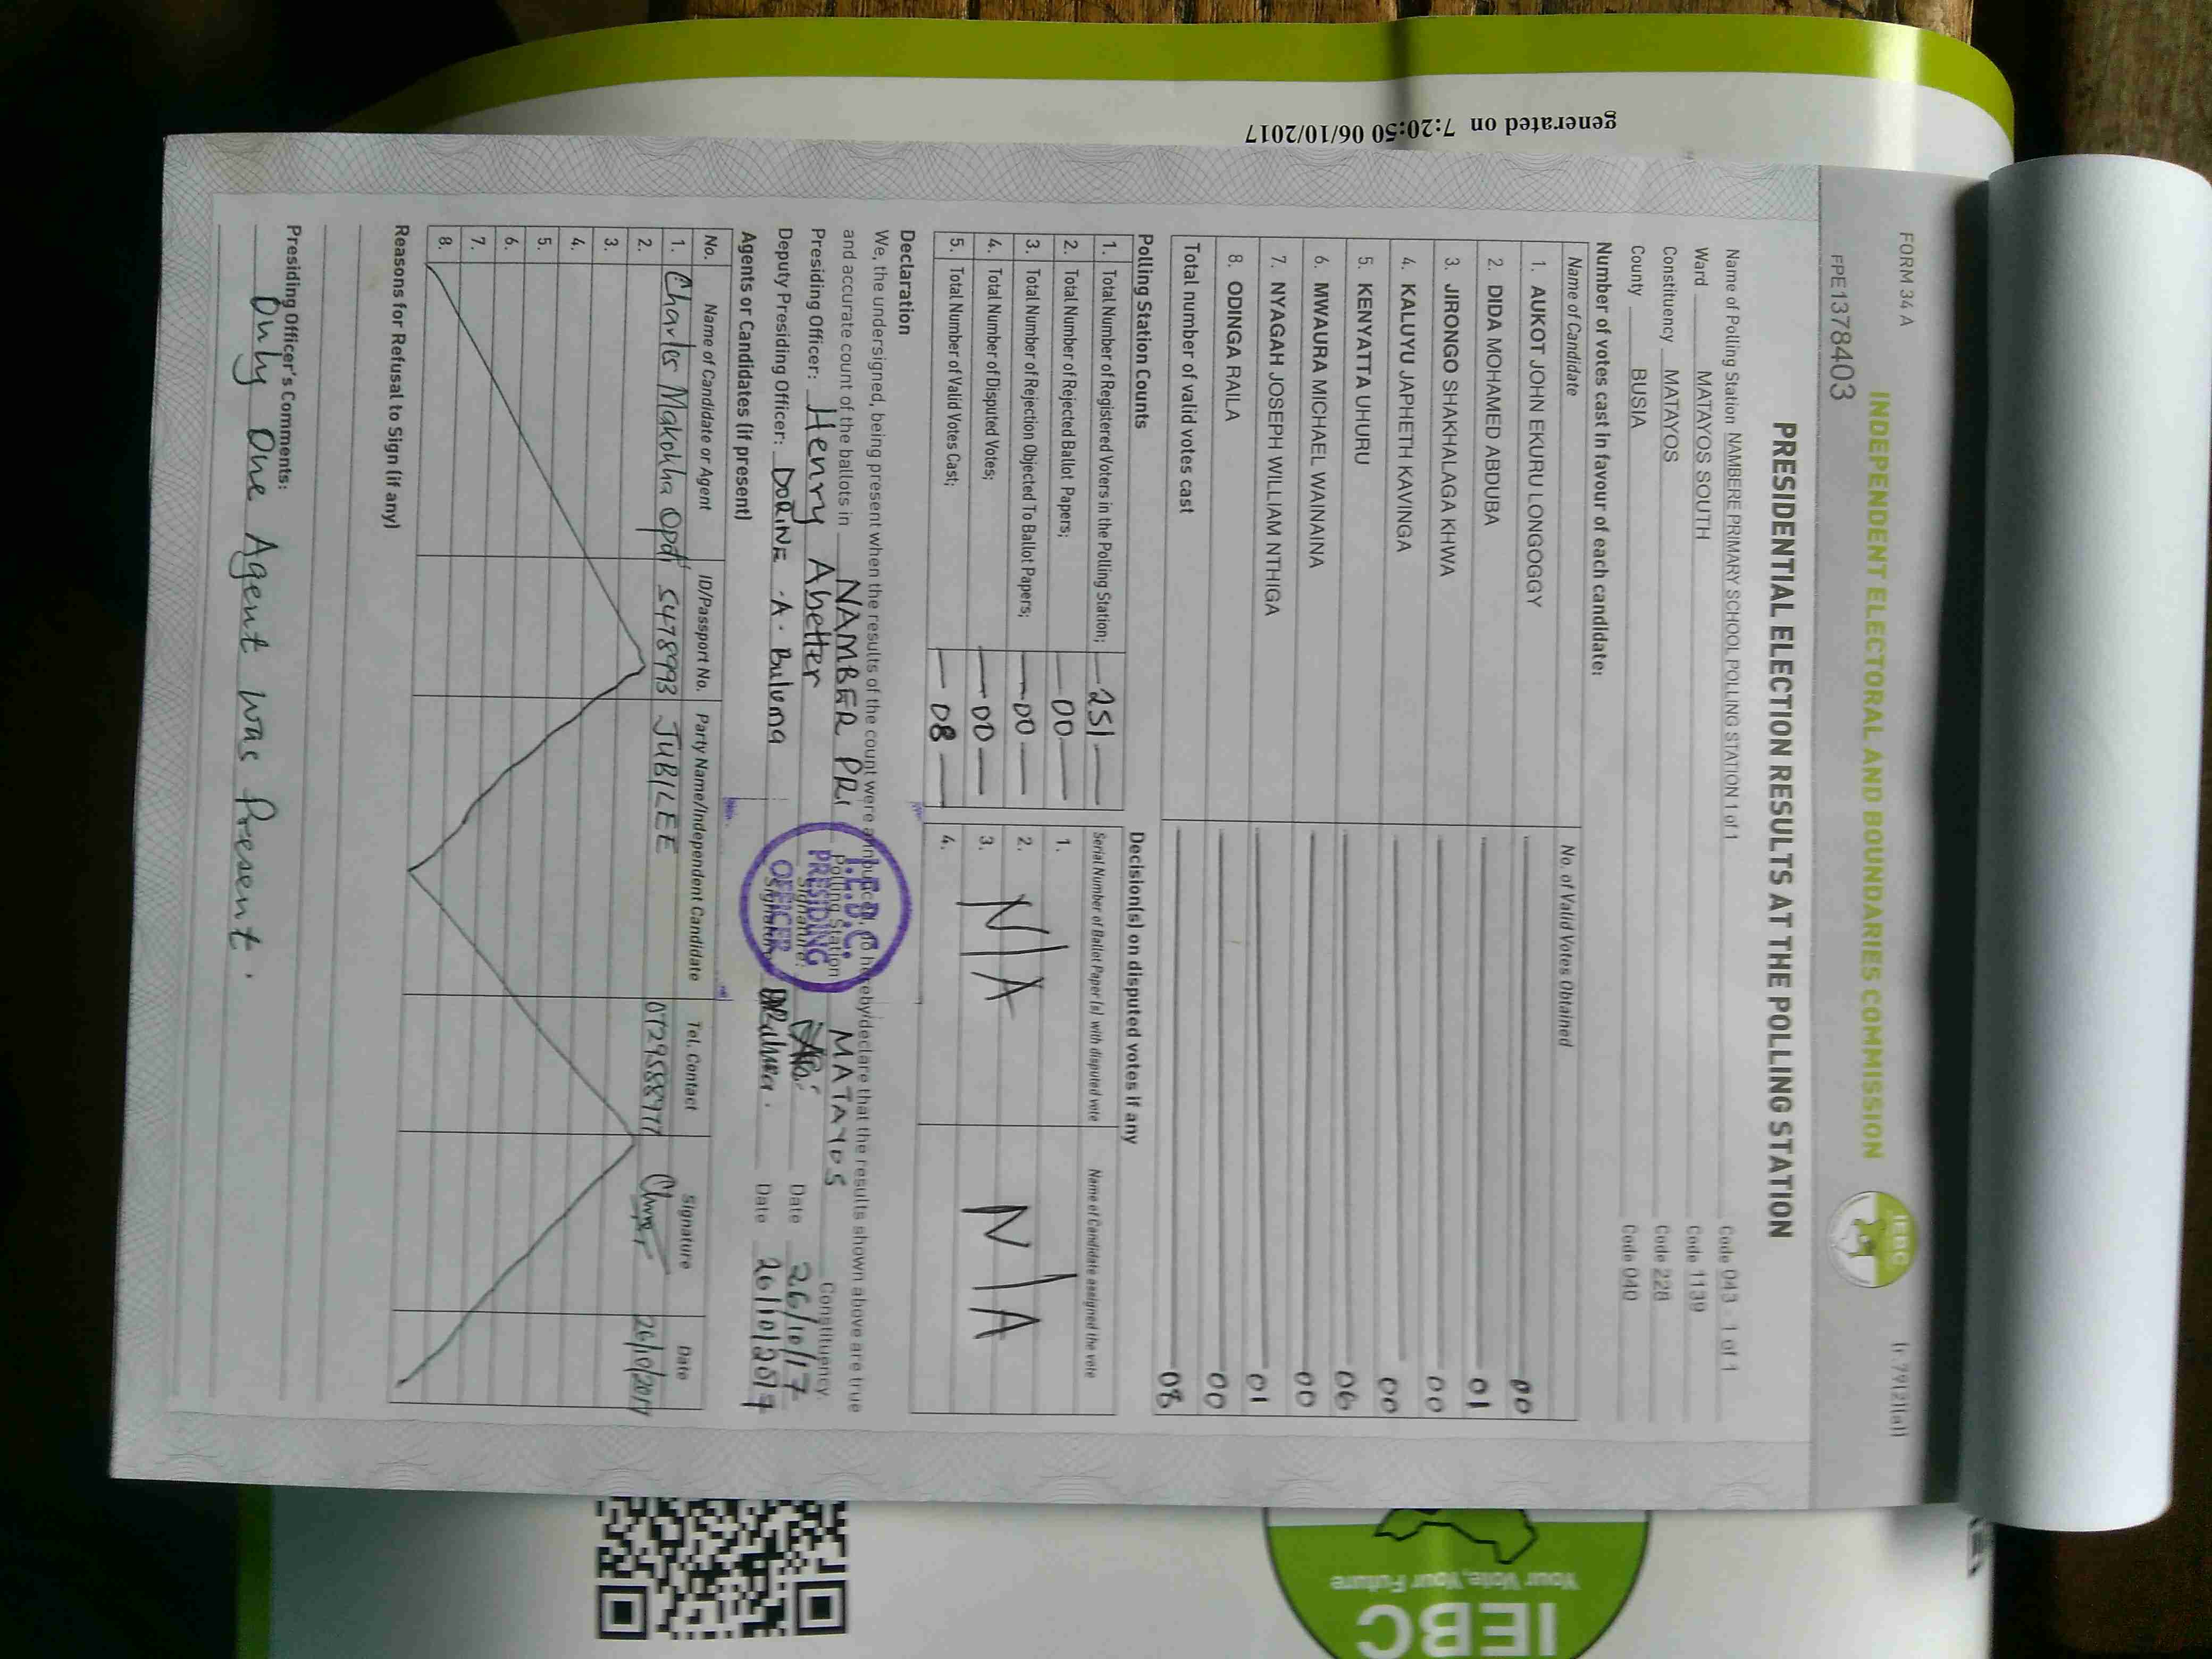 generated on 7:20:50 06/10/2017
FORM 34 A
INDEPENDENT ELECTORAL AND BOUNDARIES COMMISSION
IEBC
FPE1378403
PRESIDENTIAL ELECTION RESULTS AT THE POLLING STATION
Name of Polling Station NAMBERE PRIMARY SCHOOL POLLING STATION 1 of 1 Code 043 1 of 1
Ward MATAYOS SOUTH Code 1139
Constituency MATAYOS Code 228
County BUSIA Code 040
Number of votes cast in favour of each candidate:
Name of Candidate No. of Valid Votes Obtained
1. AUKOT JOHN EKURU LONGOGGY 00
2. DIDA MOHAMED ABDUBA 01
3. JIRONGO SHAKHALAGA KHWA 00
4. KALUYU JAPHETH KAVINGA 00
5. KENYATTA UHURU 06
6. MWAURA MICHAEL WAINAINA 00
7. NYAGAH JOSEPH WILLIAM NTHIGA 01
8. ODINGA RAILA 00
Total number of valid votes cast 08
Polling Station Counts Decision(s) on disputed votes if any
Serial Number of Ballot Paper (s) with disputed vote Name of Candidate assigned the vote
1. Total Number of Registered Voters in the Polling Station; 251 1.
2. Total Number of Rejected Ballot Papers; 00 2. N/A N/A
3. Total Number of Rejection Objected To Ballot Papers; 00 3.
4. Total Number of Disputed Votes; 00 4.
5. Total Number of Valid Votes Cast; 08
Declaration
We, the undersigned, being present when the results of the count were announced, do hereby declare that the results shown above are true
and accurate count of the ballots in NAMBER PRI Polling Station MATAYOS Constituency.
Presiding Officer: Henry Abetter Signature: Date 26/10/17
Deputy Presiding Officer: DORINE A. Buluma Signature Date 26/10/2017
I.E.B.C.
PRESIDING
OFFICER
Agents or Candidates (if present)
No. Name of Candidate or Agent ID/Passport No. Party Name/Independent Candidate Tel. Contact Signature Date
1. Charles Makokha Opd 5478993 JUBILEE 0729588977 26/10/2017
2.
3.
4.
5.
6.
7.
8.
Reasons for Refusal to Sign (if any)
Presiding Officer's Comments:
Only One Agent was Present.
Your Vote, Your Future
IEBC